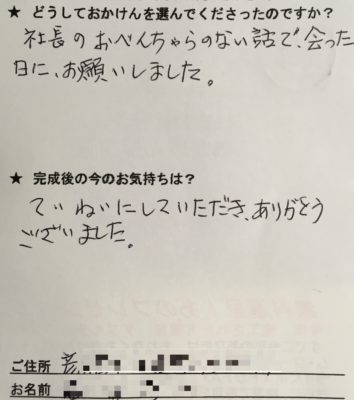 ★ どうしておかけんを選んでくださったのですか？
社長のおべんちゃらのない話で、会った
日に、お願いしました。
★ 完成後の今のお気持ちは？
ていねいにしていただき、ありがとう
ございました。
ご住所
お名前